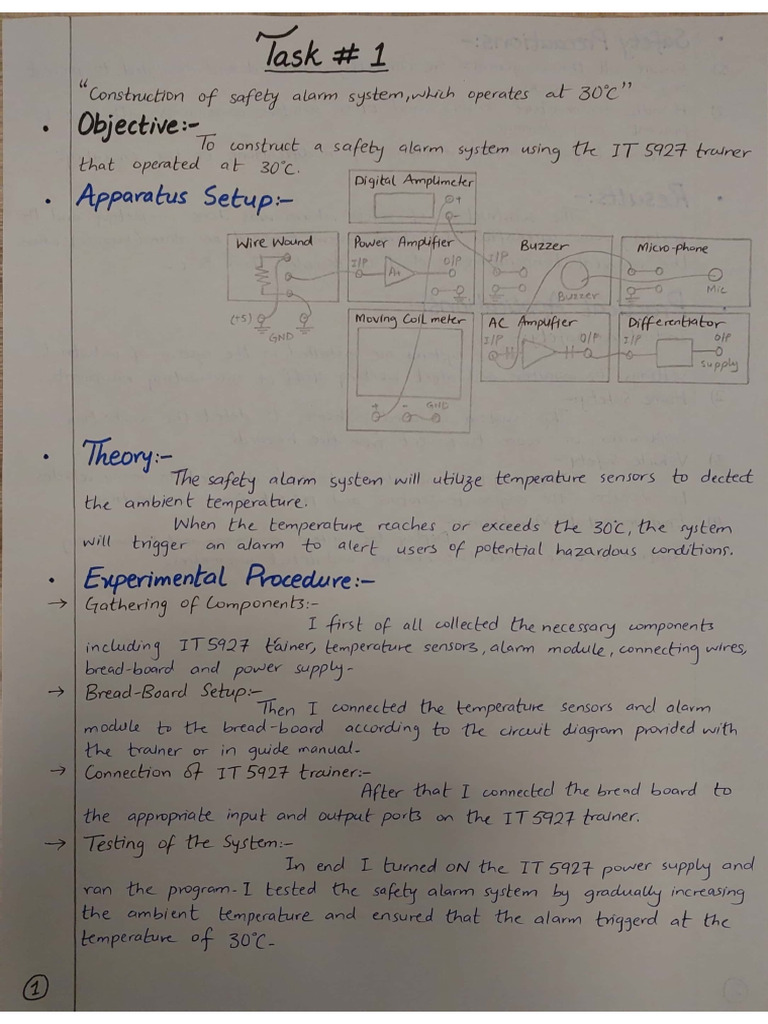 Task # 1
"Construction of safety alarm system, which operates at 30°C"
• Objective:-
To construct a safety alarm system using the IT 5927 trainer
that operated at 30°C.
• Apparatus Setup:-
Digital Amplimeter
+
-
Wire Wound
(+5)
GND
Power Amplifier
I/P
O/P
Buzzer
I/P
Buzzer
Micro-phone
Mic
Moving Coil meter
+ - GND
AC Amplifier
I/P
O/P
Differentiator
I/P
O/P
supply
• Theory:-
The safety alarm system will utilize temperature sensors to dectect
the ambient temperature.
When the temperature reaches or exceeds the 30°C, the system
will trigger an alarm to alert users of potential hazardous conditions.
• Experimental Procedure:-
→ Gathering of Components:-
I first of all collected the necessary components
including IT 5927 tainer, temperature sensors, alarm module, connecting wires,
bread-board and power supply-
→ Bread-Board Setup:-
Then I connected the temperature sensors and alarm
module to the bread-board according to the circuit diagram provided with
the trainer or in guide manual-
→ Connection of IT 5927 trainer:-
After that I connected the bread board to
the appropriate input and output ports on the IT 5927 trainer.
→ Testing of the System:-
In end I turned ON the IT 5927 power supply and
ran the program- I tested the safety alarm system by gradually increasing
the ambient temperature and ensured that the alarm triggerd at the
temperature of 30°C-
1